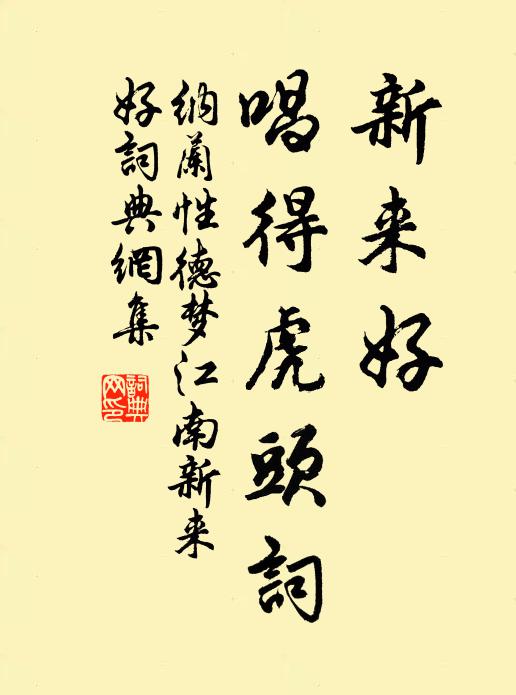 新来好
唱得虎頭詞
纳蘭性德梦江南新来
好詞典網集
詞典
网印